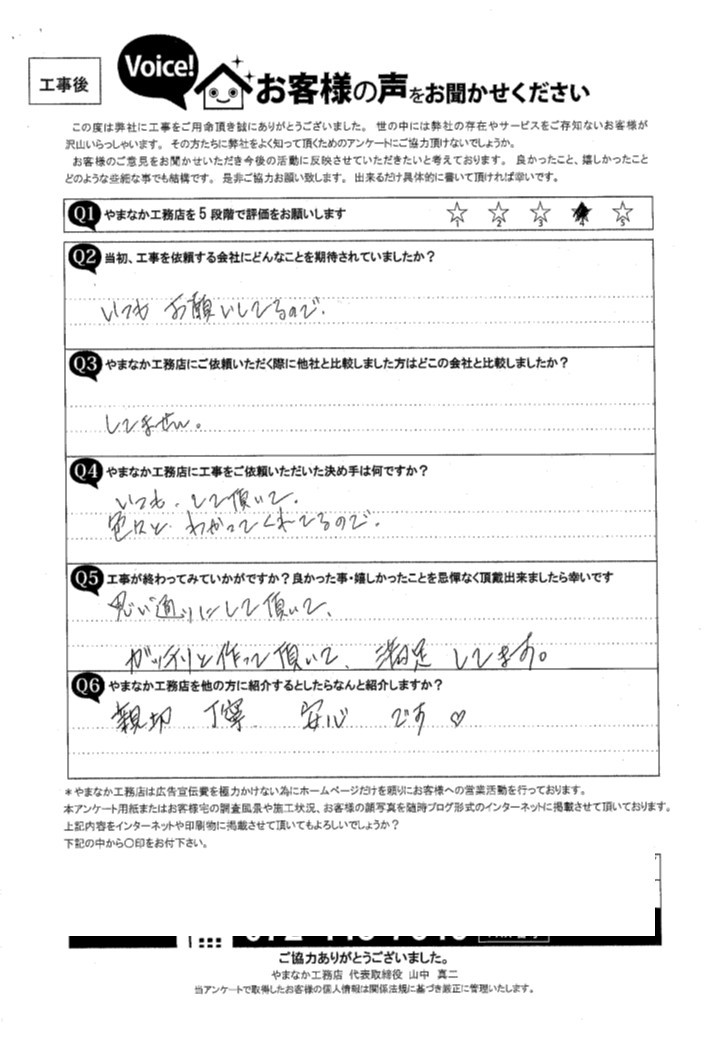 工事後
Voice!
お客様の声をお聞かせください
この度は弊社に工事をご用命頂き誠にありがとうございました。 世の中には弊社の存在やサービスをご存知ないお客様が
沢山いらっしゃいます。 その方たちに弊社をよく知って頂くためのアンケートにご協力頂けないでしょうか。
お客様のご意見をお聞かせいただき今後の活動に反映させていただきたいと考えております。 良かったこと、嬉しかったこと
どのような些細な事でも結構です。 是非ご協力お願い致します。 出来るだけ具体的に書いて頂ければ幸いです。
Q1 やまなか工務店を5段階で評価をお願いします ☆ ☆ ☆ ★ ☆
1 2 3 4 5
Q2 当初、工事を依頼する会社にどんなことを期待されていましたか？
いつも お願いしてるので.
Q3 やまなか工務店にご依頼いただく際に他社と比較しました方はどこの会社と比較しましたか？
してません。
Q4 やまなか工務店に工事をご依頼いただいた決め手は何ですか？
いつも、して頂いて.
色々と わかってくれてるので.
Q5 工事が終わってみていかがですか？良かった事・嬉しかったことを忌憚なく頂戴出来ましたら幸いです
思い通りにして頂いて、
ガッチリと作って頂いて、満足してます。
Q6 やまなか工務店を他の方に紹介するとしたらなんと紹介しますか？
親切 丁寧 安心 です ♡
＊やまなか工務店は広告宣伝費を極力かけない為にホームページだけを頼りにお客様への営業活動を行っております。
本アンケート用紙またはお客様宅の調査風景や施工状況、お客様の顔写真を随時ブログ形式のインターネットに掲載させて頂いております。
上記内容をインターネットや印刷物に掲載させて頂いてもよろしいでしょうか？
下記の中から〇印をお付下さい。
ご協力ありがとうございました。
やまなか工務店 代表取締役 山中 真二
当アンケートで取得したお客様の個人情報は関係法規に基づき厳正に管理いたします。